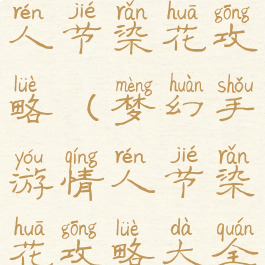 rén jié rǎn huā gōng
人节染花攻
lüè mèng huàn shǒu
略（梦幻手
yóu qíng rén jié rǎn
游情人节染
huā gōng lüè dà quán
花攻略大全